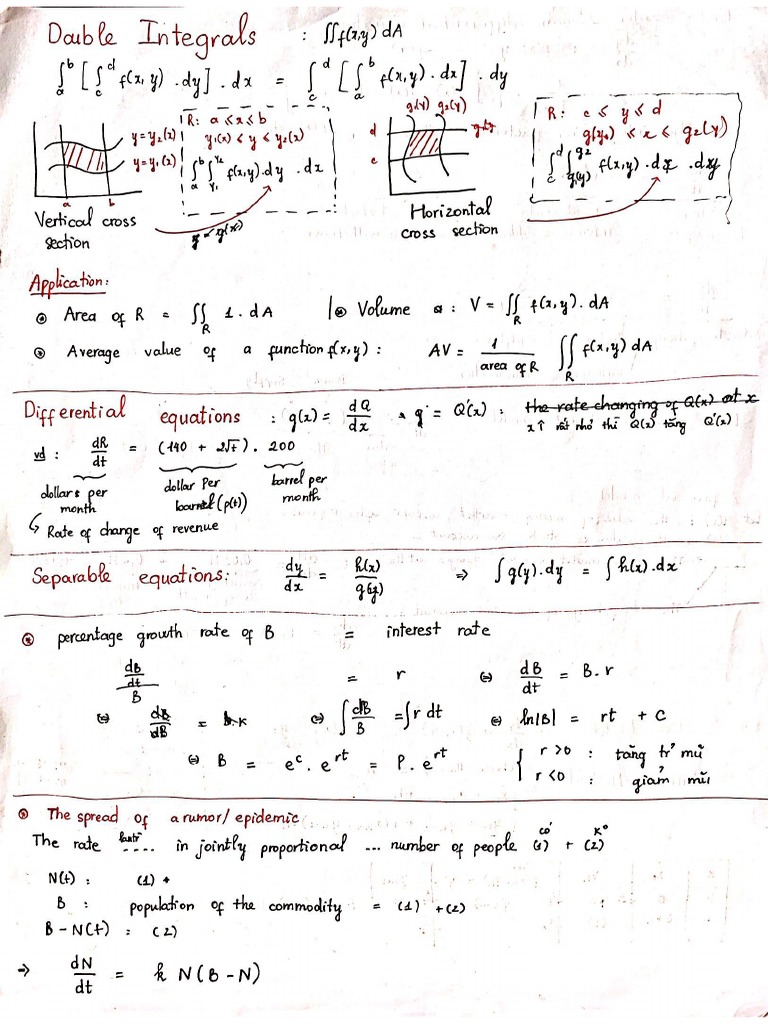 Double Integrals : ∬f(x,y) dA
∫_a^b [∫_c^d f(x, y) . dy] . dx = ∫_c^d [∫_a^b f(x,y) . dx] . dy
R: a ≤ x ≤ b
y₁(x) ≤ y ≤ y₂(x)
∫_a^b ∫_{y₁}^{y₂} f(x,y) . dy . dx
y = y₂(x)
y = y₁(x)
a b
Vertical cross
section
g₁(y) g₂(y)
d
c
Horizontal
cross section
R: c ≤ y ≤ d
g(y₁) ≤ x ≤ g₂(y)
∫_c^d ∫_{g₁(y)}^{g₂} f(x,y) . dx . dy
Application:
Area of R = ∬_R 1. dA | Volume : V = ∬_R f(x,y). dA
Average value of a function f(x,y) : AV = 1/(area of R) ∬_R f(x,y) dA
Differential equations : g(x) = dQ/dx g = Q'(x) : the rate changing of Q(x) at x
x↑ rất nhỏ thì Q(x) tăng Q'(x)
vd : dR/dt = (140 + 2√t) . 200
dollars per month
dollar Per barrel (p(t))
barrel per month
↳ Rate of change of revenue
Separable equations: dy/dx = h(x)/g(y) ⇒ ∫g(y).dy = ∫h(x).dx
percentage growth rate of B = interest rate
(dB/dt)/B = r ⇔ dB/dt = B. r
⇔ ∫dB/B = ∫r dt ⇔ ln|B| = rt + c
⇔ B = e^c . e^rt = P . e^rt { r >0 : tăng trị mũ
r <0 : giảm mũ
The spread of a rumor/ epidemic
The rate .... in jointly proportional ... number of people (1) có + (2) k°
N(t) : (1) +
B : population of the commodity = (1) +(2)
B - N(t) : (2)
⇒ dN/dt = k N(B-N)